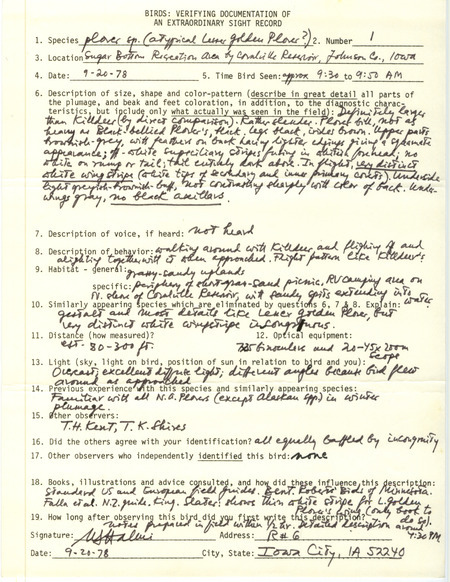 BIRDS: VERIFYING DOCUMENTATION OF
AN EXTRAORDINARY SIGHT RECORD
1. Species plover sp. (atypical Lesser Golden Plover?) 2. Number 1
3. Location Sugar Bottom Recreation Area by Coralville Reservoir, Johnson Co., Iowa
4. Date: 9-20-78 5. Time Bird Seen: approx 9:30 to 9:50 AM
6. Description of size, shape and color-pattern (describe in great detail all parts
of the plumage, and beak and feet coloration, in addition, to the diagnostic charac-
teristics, but include only what actually was seen in the field): Definitely larger
than Killdeer (by direct comparison). Rather slender. Plover bill, not as
heavy as Black-bellied Plover's, black. Legs black, irides brown. Upper parts
brownish-grey, with feathers on back having lighter edgings giving a
appearance; white superciliary stripes fusing in whitish forehead; no
white on rump or tail; tail entirely dark above. In flight, very distinct
white wingstripe (white tips of secondary and inner primary coverts). Underside
light greyish-brownish-buff, not contrasting sharply with color of back. Under-
wings gray, no black axillars.
7. Description of voice, if heard: not heard
8. Description of behavior: walking around with Killdeer and flighing off and
alighting together with it when approached. Flight pattern like Killdeer's
9. Habitat - general: grassy-sandy uplands
specific: periphery of short-grass-sand picnic, RV camping area on
N. shore of Coralville Reservoir, with sandy spits extending into water
10. Similarly appearing species which are eliminated by questions 6, 7 & 8. Explain:
gestalt and most details like Lesser Golden Plover, but
very distinct white wingstripe incongruous.
11. Distance (how measured)? 12. Optical equipment:
est. 80-300 ft. 7x35 binoculars and 20-45x zoom
scope
13. Light (sky, light on bird, position of sun in relation to bird and you):
Overcast, excellent diffuse light; different angles because bird flew
around as approached
14. Previous experience with this species and similarly appearing species:
Familiar with all N.A. Plovers (except Alaskan spp.) in winter
plumage.
15. Other observers:
T.H. Kent, T.K. Shires
16. Did the others agree with your identification? all equally baffled by incongruity
17. Other observers who independently identified this bird: none
18. Books, illustrations and advice consulted, and how did these influence this description:
Standard US and European field guides. Bent. Roberts Birds of Minnesota.
Falla et al. N.Z. guide. King. Slater: shows thin white stripe for L. Golden
Plover's wing (only book to do so).
19. How long after observing this bird did you first write this description?
notes prepared in field within 1/2 hr. Detailed description around 4:30 PM
Signature: Address: R # 6
Date: 9-20-78 City, State: Iowa City, IA 52240